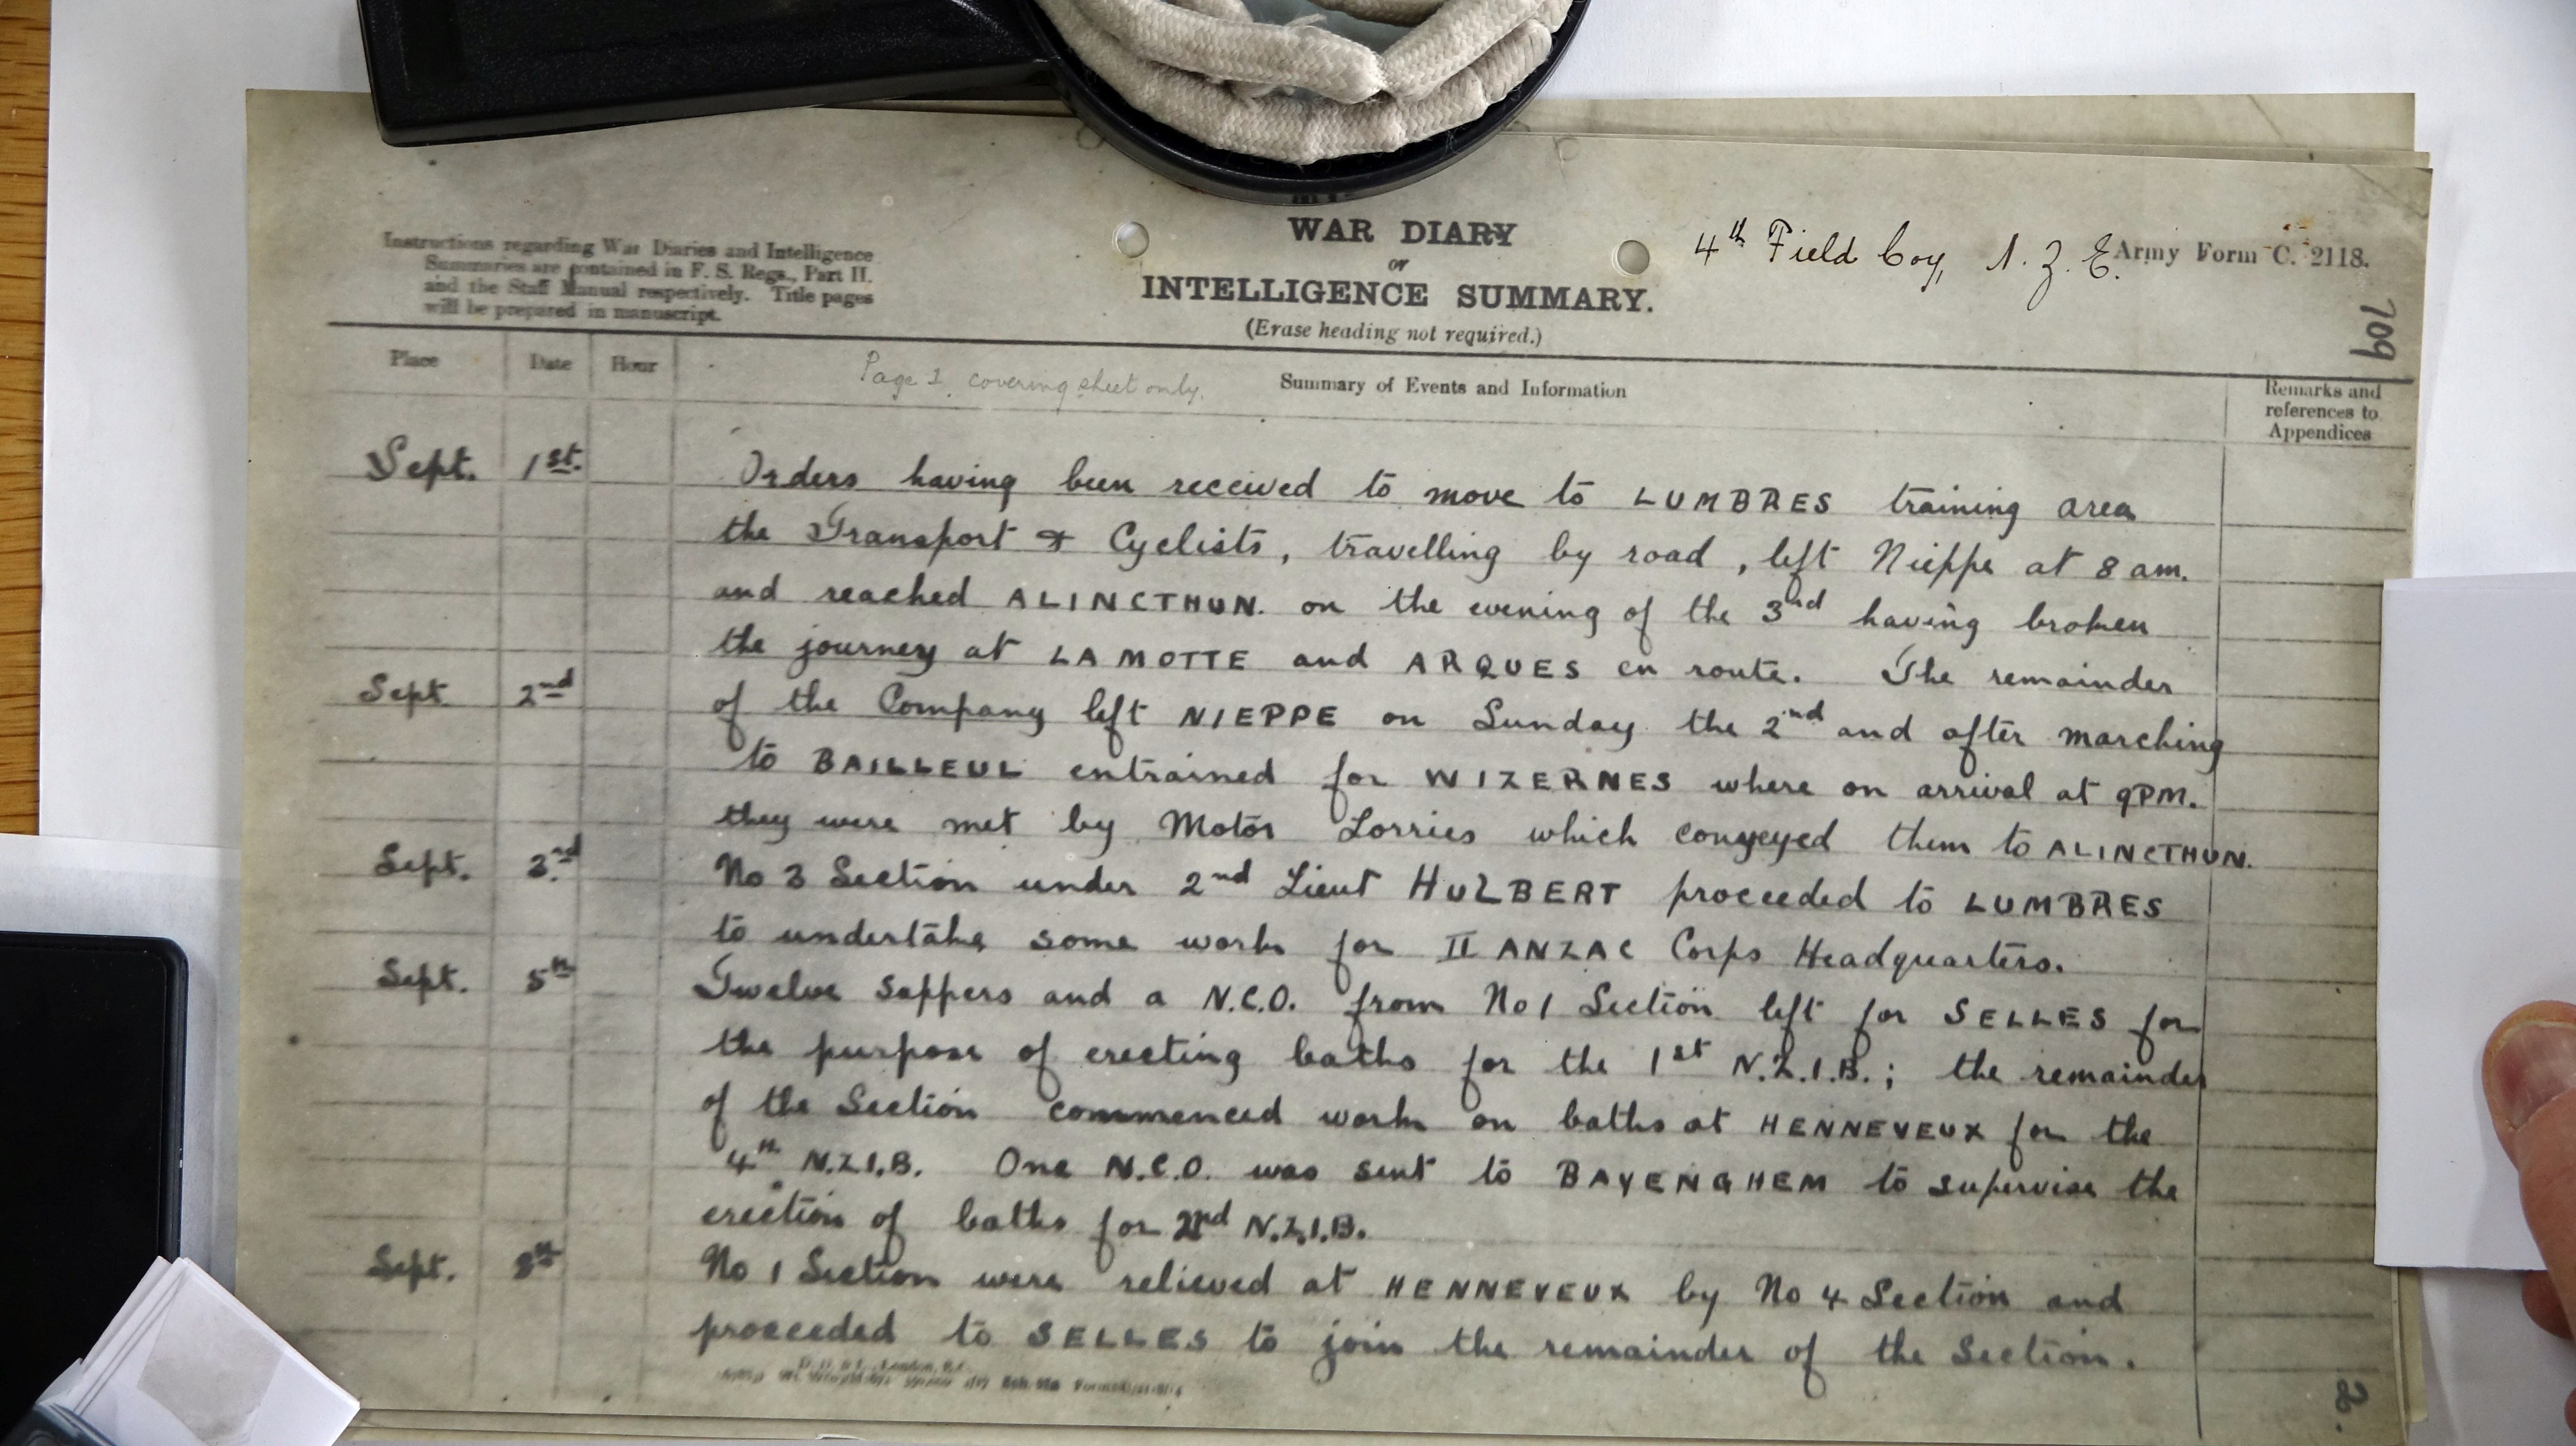 WAR DIARY
or
INTELLIGENCE SUMMARY.
(Erase heading not required.)
Instructions regarding War Diaries and Intelligence
Summaries are contained in F. S. Regs., Part II.
and the Staff Manual respectively. Title pages
will be prepared in manuscript.
4th Field Coy, N.Z.E.
Army Form C. 2118.
709
Place Date Hour Summary of Events and Information
Page 1, covering sheet only.
Remarks and
references to
Appendices
Sept. 1st. Orders having been received to move to LUMBRES training area
the Transport & Cyclists, travelling by road, left Nieppe at 8 am.
and reached ALINCTHUN. on the evening of the 3rd having broken
the journey at LA MOTTE and ARQUES en route. The remainder
Sept. 2nd of the Company left NIEPPE on Sunday the 2nd and after marching
to BAILLEUL entrained for WIZERNES where on arrival at 9PM.
they were met by Motor Lorries which conveyed them to ALINCTHUN.
Sept. 3rd No 3 Section under 2nd Lieut HULBERT proceeded to LUMBRES
to undertake some work for II ANZAC Corps Headquarters.
Sept. 5th Twelve sappers and a N.C.O. from No 1 Section left for SELLES for
the purpose of erecting baths for the 1st N.Z.I.B.; the remainder
of the Section commenced work on baths at HENNEVEUX for the
4th N.Z.I.B. One N.C.O. was sent to BAYENGHEM to supervise the
erection of baths for 2nd N.Z.I.B.
Sept. 8th No 1 Section were relieved at HENNEVEUX by No 4 Section and
proceeded to SELLES to join the remainder of the Section.
2.